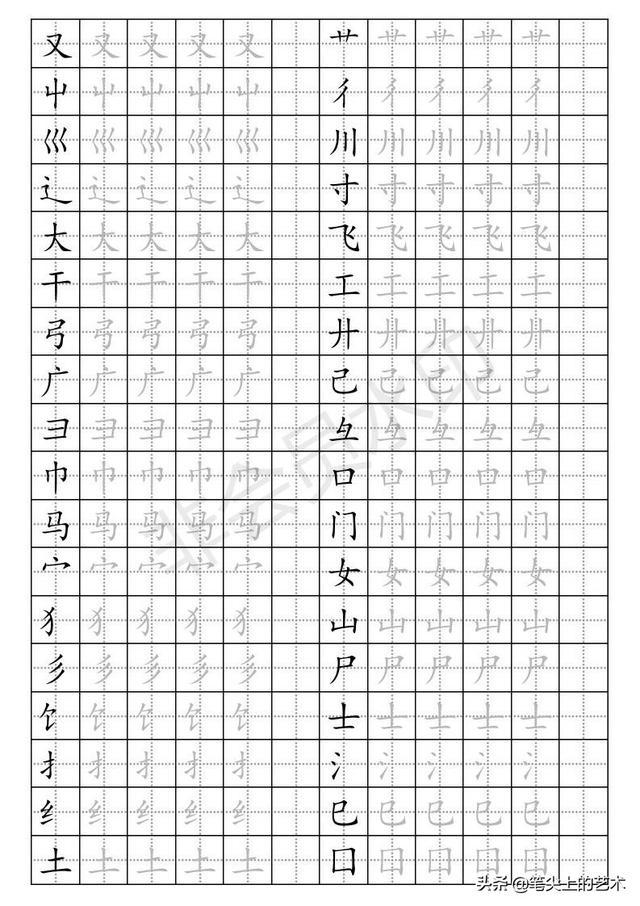 又又又又又 艹艹艹艹艹
屮屮屮屮屮 彳彳彳彳彳
巛巛巛巛巛 川川川川川
辶辶辶辶辶 寸寸寸寸寸
大大大大大 飞飞飞飞飞
干干干干干 工工工工工
弓弓弓弓弓 廾廾廾廾廾
广广广广广 己己己己己
彐彐彐彐彐 彑彑彑彑彑
巾巾巾巾巾 口口口口口
马马马马马 门门门门门
宀宀宀宀宀 女女女女女
犭犭犭犭犭 山山山山山
彡彡彡彡彡 尸尸尸尸尸
饣饣饣饣饣 士士士士士
扌扌扌扌扌 氵氵氵氵氵
纟纟纟纟纟 巳巳巳巳巳
土土土土土 囗囗囗囗囗
非会员水印
头条@笔尖上的艺术